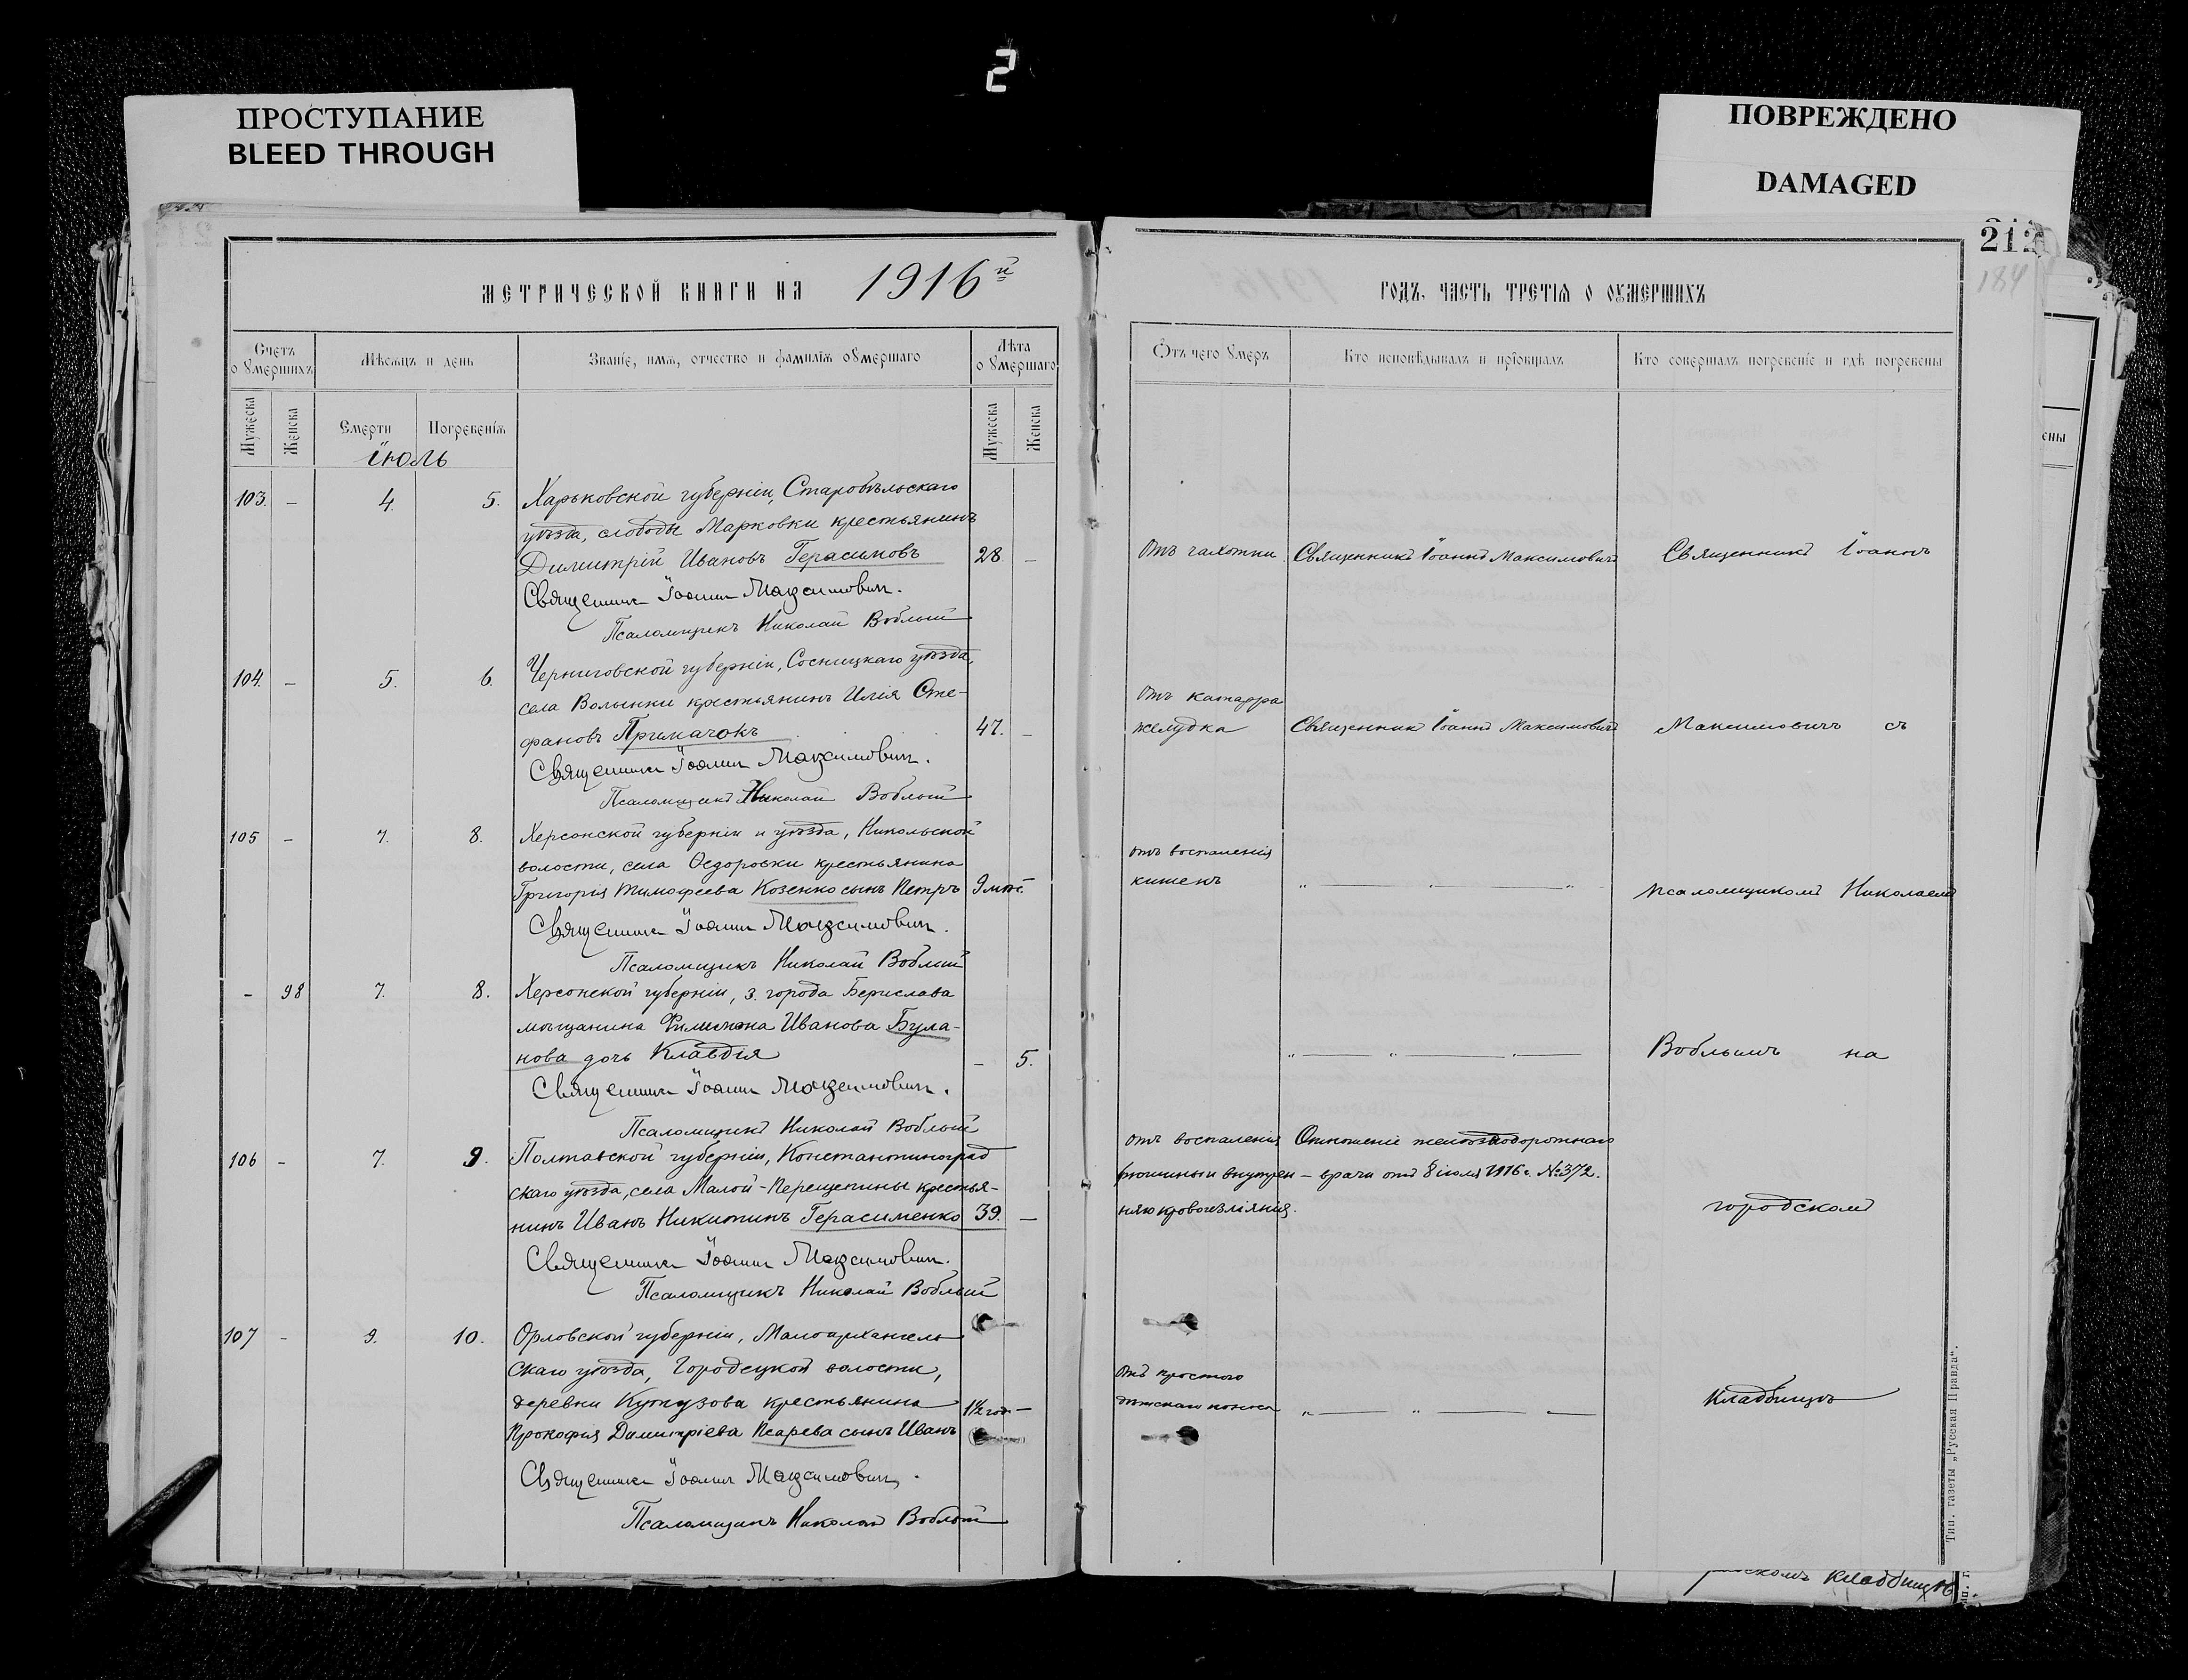 2
ПРОСТУПАНИЕ
BLEED THROUGH
ПОВРЕЖДЕНО
DAMAGED
212
184
МЕТРИЧЕСКОЙ КНИГИ НА 1916й
Счетъ о умершихъ
Мѣсяцъ и день
Званіе, имя, отчество и фамилія умершаго
Лѣта умершаго
Мужеска
Женска
Смерти
Погребенія
Мужеска
Женска
Іюль
103. – 4. 5. Харьковской губерніи, Старобѣльскаго
уѣзда, слободы Марковки крестьянинъ
Димитрій Ивановъ Герасимовъ 28. –
Священникъ Іоаннъ Максимович.
Псаломщикъ Николай Воблый
104. – 5. 6. Черниговской губерніи, Сосницкаго уѣзда,
села Волынки крестьянинъ Илія Сте-
фановъ Примачокъ 47. –
Священникъ Іоаннъ Максимович.
Псаломщикъ Николай Воблый
105 – 7. 8. Херсонской губерніи и уѣзда, Никольской
волости, села Ѳедоровки крестьянина
Григорія Тимофеева Козенко сынъ Петръ 9 мѣс.
Священникъ Іоаннъ Максимович.
Псаломщикъ Николай Воблый
– 98 7. 8. Херсонской губерніи, з. города Берислава
мѣщанина Филимона Иванова Була-
нова дочь Клавдія – 5.
Священникъ Іоаннъ Максимович.
Псаломщикъ Николай Воблый
106 – 7. 9. Полтавской губерніи, Константиноград
скаго уѣзда, села Малой-Перещепины крестья-
нинъ Иванъ Никитинъ Герасименко 39. –
Священникъ Іоаннъ Максимович.
Псаломщикъ Николай Воблый
107 – 9. 10. Орловской губерніи, Малоархангель
скаго уѣзда, Городецкой волости,
деревни Кутузова крестьянина
Прокофія Димитріева Псарева сынъ Иванъ 1½ год –
Священникъ Іоаннъ Максимович.
Псаломщикъ Николай Воблый
ГОДЪ, ЧАСТЬ ТРЕТІЯ О УМЕРШИХЪ
Отъ чего умеръ
Кто исповѣдывалъ и пріобщалъ
Кто совершалъ погребеніе и гдѣ погребены
Отъ чахотки Священникъ Іоаннъ Максимовичъ Священникъ Іоаннъ
отъ катарра
желудка Священникъ Іоаннъ Максимовичъ Максимовичъ съ
отъ воспаленія
кишекъ " " " псаломщикомъ Николаемъ
" " " Воблымъ на
отъ воспаленія Отношеніе желѣзнодорожнаго
брюшины и внутрен – врача отъ 8 іюля 1916 г. №372.
няго кровоизліянія. городскомъ
отъ простого
дѣтскаго поноса " " кладбищѣ
Тип. газеты „Русская Правда“.
ены
кладбищѣ